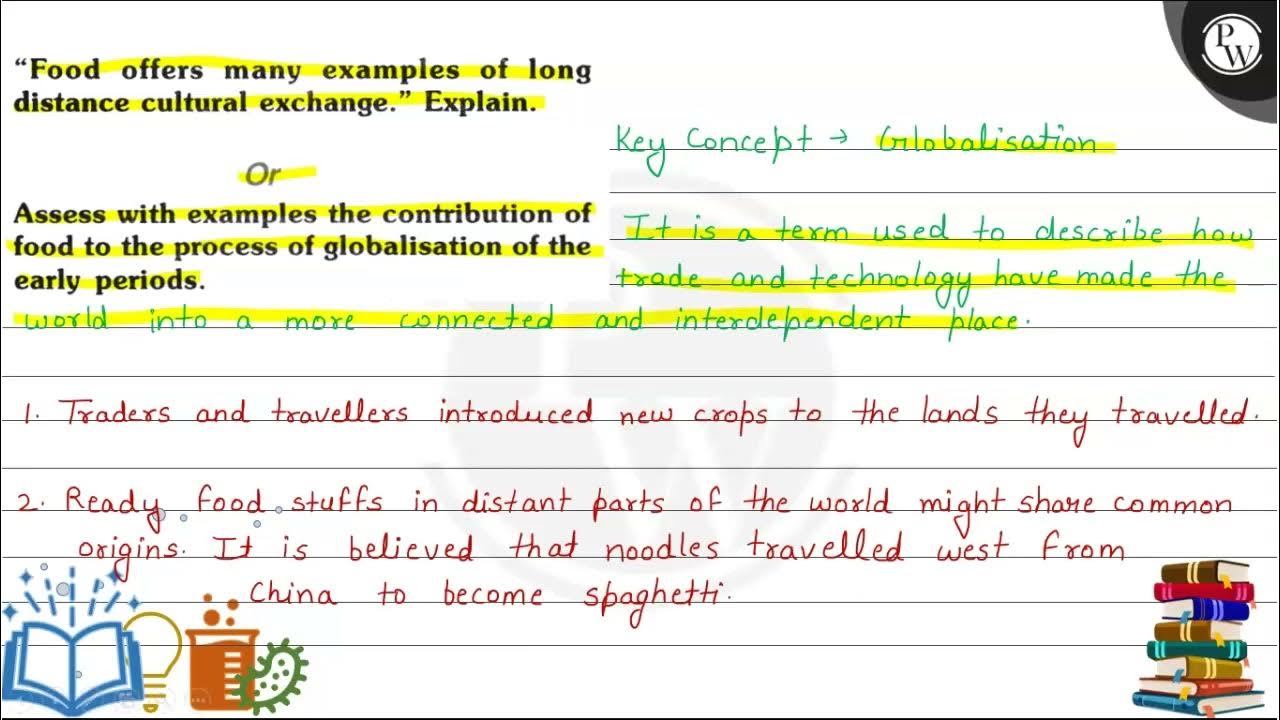 PW
"Food offers many examples of long
distance cultural exchange." Explain.
Or
Assess with examples the contribution of
food to the process of globalisation of the
early periods.
Key Concept → Globalisation
It is a term used to describe how
trade and technology have made the
world into a more connected and interdependent place.
1. Traders and travellers introduced new crops to the lands they travelled.
2. Ready food stuffs in distant parts of the world might share common
origins. It is believed that noodles travelled west from
China to become spaghetti.